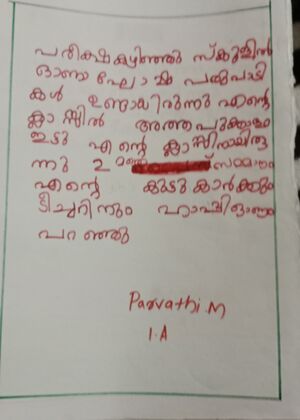 പരീക്ഷകഴിഞ്ഞു സ്കൂളിൽ
ഓണാഘോഷ പരുപാടി
കൾ ഉണ്ടായിരുന്നു എന്റെ
ക്ലാസ്സിൽ അത്തപൂക്കളം
ഇട്ടു എന്റെ ക്ലാസ്സിനായിരു
ന്നു 2 സമ്മാനം
എന്റെ കൂട്ടുകാർക്കും
ടീച്ചറിനും ഹാപ്പിഓണം
പറഞ്ഞു
Parvathi.M
1.A